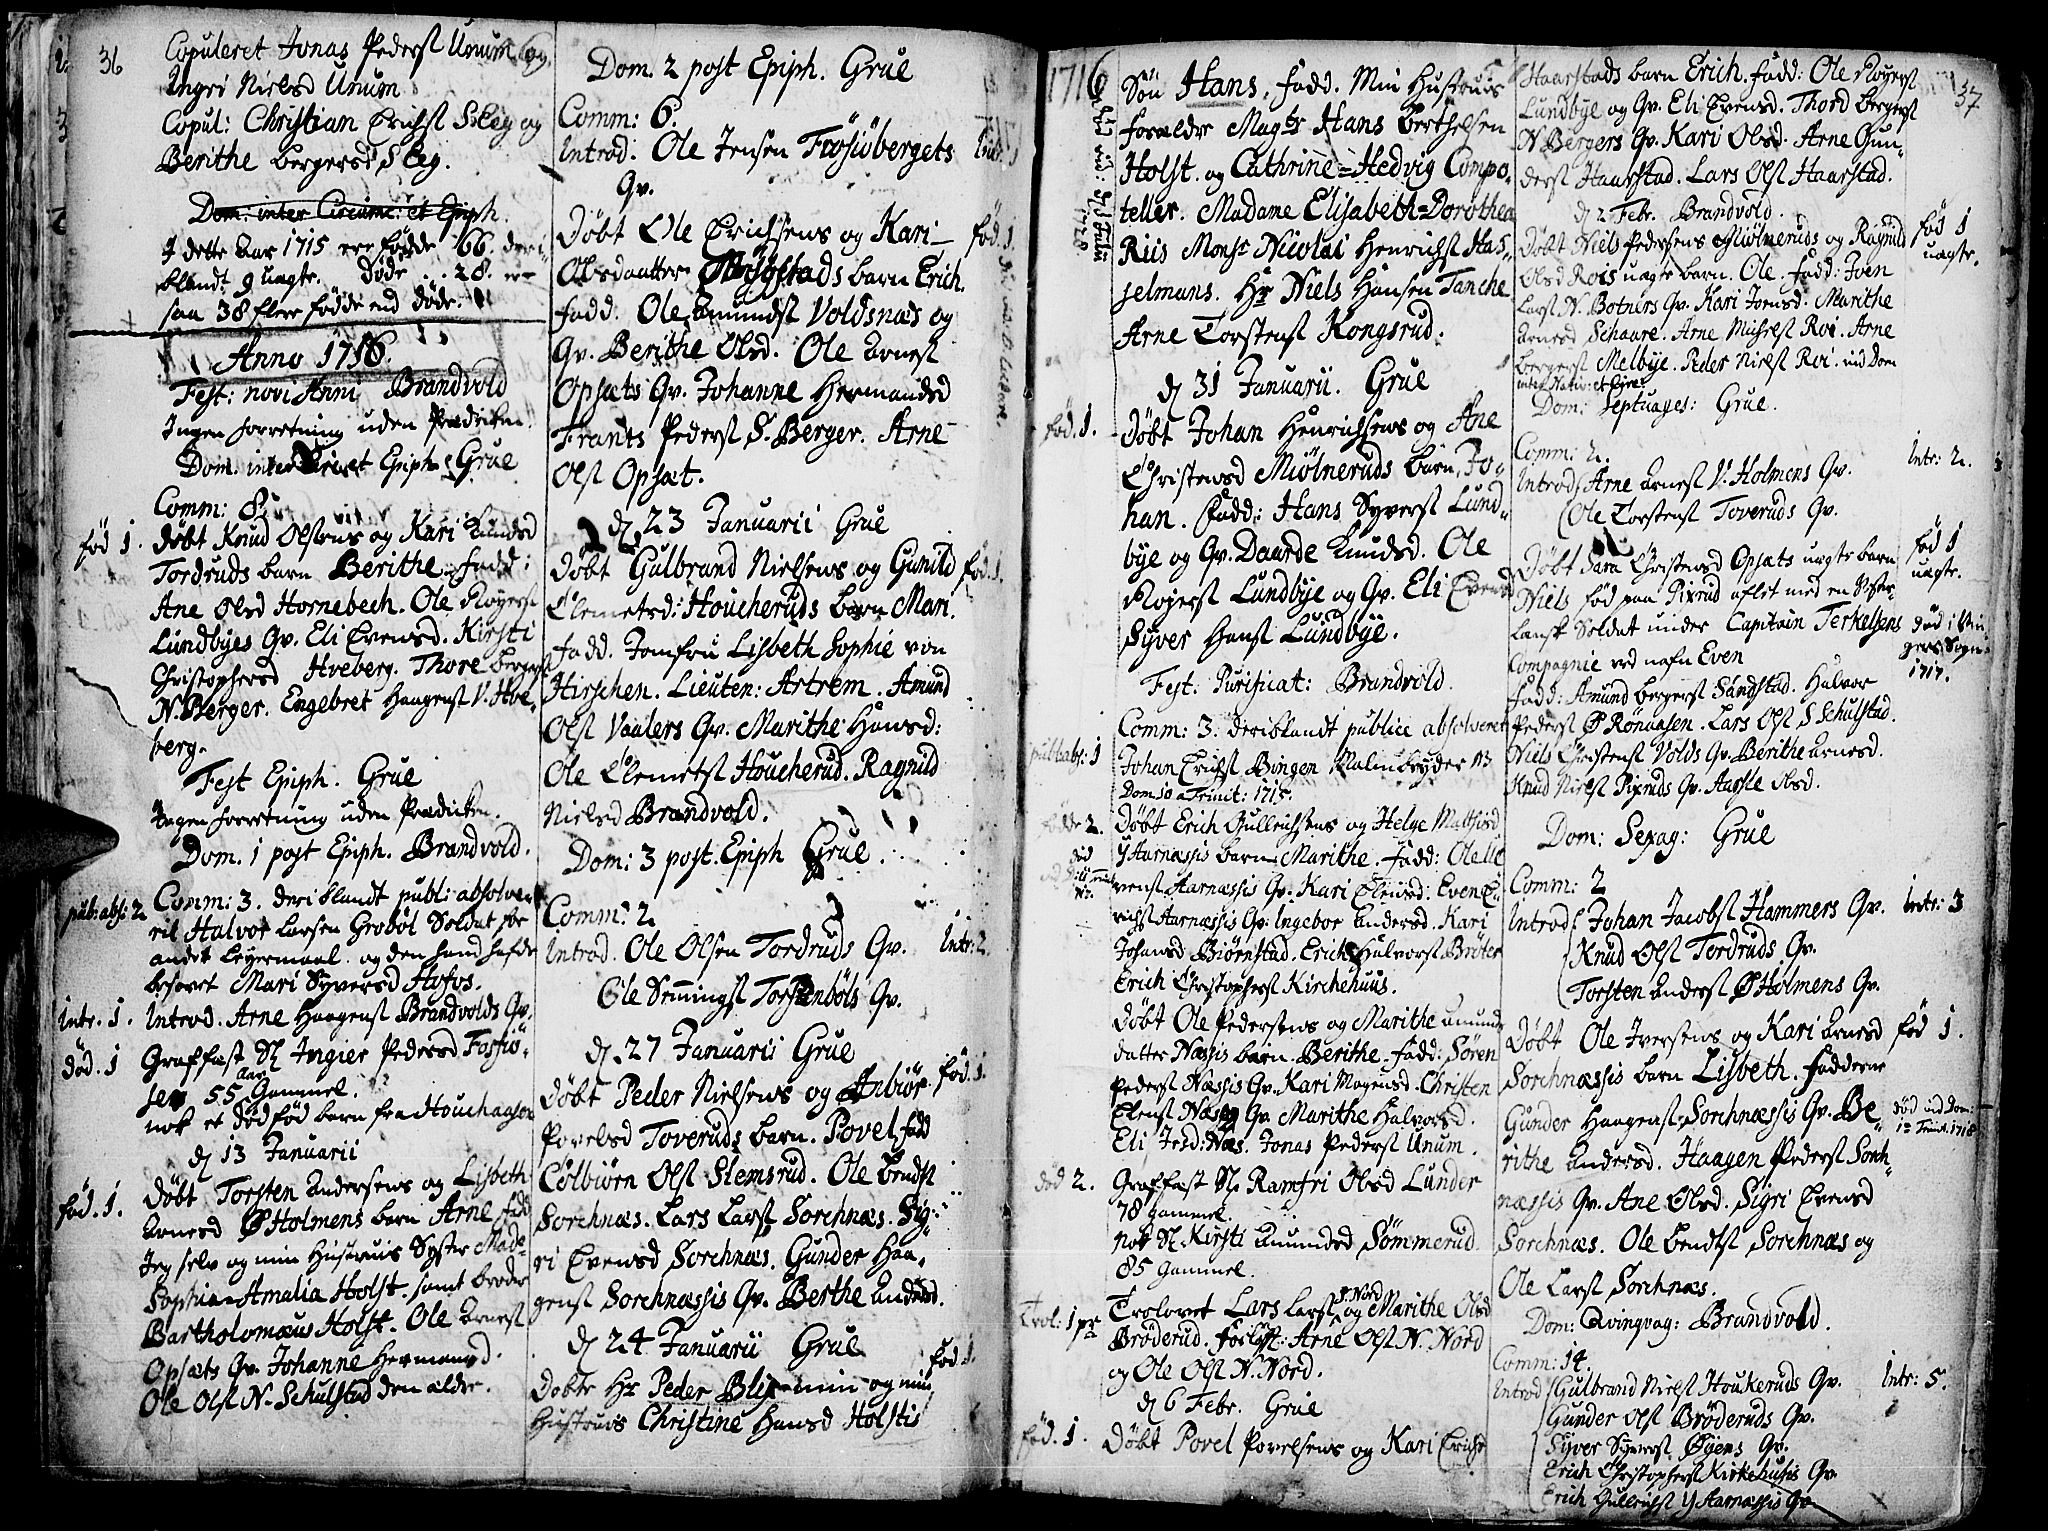 36
Copuleret Jonas Pederst Unum og
Ingri Nielsd Unum
Copul: Christian Erichst Skeg og
Berithe Bergersd Skeg.
Dom: inter Circumc: et Epiph.
I dette Aar 1715 ere födde 66. deri-
blandt 9 uægte. döde .. 28. ere
saa 38 flere födde end döde.
Anno 1716.
Fest: novi Anni Brandvold
Ingen forretning uden Prædiken.
Dom. inter et Epiph. Grue
Comm: 8.
föd 1. döbt Knud Olsens og Kari Knudsd
Tordruds barn Berithe. fadd:
Ane Olsd Hornebech. Ole Royerst
Lundbyes Qv. Eli Evensd. Kirsti
Christophersd Hveberg. Thore Bergerst
N. Berger. Engebret Haagenst V. Hve-
berg.
Fest Epiph. Grue
Ingen forretning uden Prædiken.
Dom. 1 post Epiph. Brandvold.
pub: abs: 2 Comm: 3. deriblandt publ: absolve-
ret Halvor Larsen Grobøl Soldat for
andet Leyermaal. og den hand hafde
besovet Mari Syversd Hofos.
Intr. 1. Introd. Arne Haagenst Brandvolds Qv.
död. 1 Graffæst Sl. Ingier Pedersd Fossiö-
sen 55 Aar Gammel.
nok et dödföd barn fra Houchaasen
d 13 Januarii
föd. 1. döbt Torsten Andersens og Lisbeth
Arnesd Ø Holmens barn Arne fadd
Jeg selv og min Hustrues Syster Made-
Sophia-Amalia Holst. samt broder
Bartholomæus Holst. Ole Arnest
Opsæts Qv. Johanne Hermansd.
Ole Olst N. Schulstad den eldre.
Dom. 2 post Epiph. Grue
Comm: 6.
Introd: Ole Jensen Frösiöbergets Intr. 1
Qv.
Döbt Ole Erichsens og Kari föd. 1.
Olsdaatter barn Erich.
fadd. Ole Amundst Voldsnæs og
Qv. Berithe Olsd. Ole Arnest
Opsæts Qv. Johanne Hermandsd
Frants Pederst S. Berger. Arne
Olst Opsæt.
d 23 Januarii Grue
döbt Gulbrand Nielsens og Gunild föd. 1.
Clemetsd: Houcheruds barn Mari.
fadd. Jomfru Lisbeth Sophie von
Hirschen. Lieuten: Artrem. Amund
Olst Vaalers Qv. Marithe Hansd:
Ole Clemetst Houcherud. Ragnild
Nielsd Brandvold.
Dom: 3 post. Epiph Grue.
Comm: 2
Introd. Ole Olsen Tordruds Qv. Intr: 2.
Ole Semmingst Torsenböls Qv.
d. 27 Januarii Grue
Döbt Peder Nielsens og Anbiör föd. 1.
Povelsd Toveruds barn. Povel. fadd
Colbiörn Olst Slemsrud. Ole Bendst
Sorchnæs. Lars Larst Sorchnæs. Sig-
ri Evensd Sorchnæs. Gunder Haa-
genst Sorchnæssis Qv. Berthe Andersd.
d 24 Januarii Grue
föd. 1.
Dobte Hr Peder Blix min og min
Hustrues Christine Hansd Holstis
1716
Sön Hans. fadd. Min Hustrues
forældre Magtr Hans Berthelsen
Holst. og Cathrine=Hedvig Compo-
teller. Madame Elisabeth=Dorothea
Riis Monsr Nicolai Henrichst Has-
selmans. Hr Niels Hansen Tanche
Arne Torstenst Kongsrud.
d 31 Januarii. Grue
föd. 1. döbt Johan Henrichsens og Ane
Christensd Miölneruds barn. Jo-
han. fadd: Hans Syverst Lund-
bye og Qv. Daarde Knudsd. Ole
Rojerst Lundbye og Qv. Eli Evensd
Syver Hanst Lundbye.
Fest: Purificat: Brandvold.
Comm: 3. deriblandt publice absolveret
pub: abs: 1 Johan Erichst Bingen Malmbryder
Dom 10 a Trinit: 1715.
födde 2. Döbt Erich Gullrichsens og Helge Mathisd
Y Aarnæssis barn Marithe. fadd: Ole
venst Aarnæssis Qv. Kari Evensd: Even E-
richst Aarnæssis Qv: Ingebor Andersd. Kari
Johansd Biörnstad. Erich Halvorst Bröter
Erich Christopherst Kirchehuus.
döbt Ole Pedersens og Marithe Amund-
datter Næssis barn. Berithe. fadd: Sören
Pederst Næssis Qv. Kari Mogensd. Christen
Clenst Næssis Qv Marithe Halvorsd.
Eli Jensd: Næs. Jonas Pederst Unum.
död 2. Graffæst Sl. Ramfri Olsd Lunder
78 Gammel.
nok Sl. Kirsti Amundsd Sömmerud
85 Gammel.
Trol: 1 pr Trolovet Lars Larst S. Nord og Marithe Olsd
Bröderud. forløft: Arne Olst N. Nord
og Ole Olst N. Nord.
d 6 Febr. Grue
föd. 1. Döbt Povel Povelsens og Kari Erichsd
37
Haarstads barn Erich. fadd: Ole Royerst
Lundbye og Qv. Eli Evensd. Thord Bergerst
N Bergers Qv. Kari Olsd. Arne Gun-
derst Haarstad. Lars Olst Haarstad.
d 2 Febr. Brandvold.
Döbt Niels Pedersens Miölneruds og Ragnild föd 1
Olsd Rois uægte barn. Ole. fadd: Joen uægte.
Larst N. Botners Qv. Kari Joensd. Marithe
Arnesd Schaare. Arne Michelst Roi. Arne
Bergerst Melbye. Peder Nielst Roi. vid Dom
inter Nativ: et Circ:
Dom: Septuages: Grue.
Comm: 2.
Introd Arne Arnest V. Holmens Qv. Intr: 2.
Ole Torstenst Toveruds Qv.
Döbt Sara Christensd Opsæts uægte barn föd 1
Niels föd paa Pixrud aflet med en uægte.
lansk Soldat under Capitain Terkelsens död i Vin-
Compagnie ved nafn Even gers Sogn
fadd: Amund Bergerst Sandstad. Halvor 1717.
Pederst Ø Rönaasen. Lars Olst S Schulstad.
Niels Christenst Volds Qv. Berithe Arnesd.
Knud Nielst Pixruds Qv. Aasse Olsd.
Dom: Sexag: Grue
Comm: 2
Introd Johan Jacobst Hammers Qv. Intr: 3
Knud Olst Tordruds Qv.
Torsten Anderst Ø Holmens Qv.
Döbt Ole Iversens og Kari Arnesd föd 1.
Sorchnæssis barn Lisbeth. Fadderne
Gunder Haagenst Sorchnæssis Qv. Be- död vid Dom:
rithe Andersd. Haagen Pederst Sorch- 1 Trinit. 1718
næssis Qv. Ane Olsd. Sigri Evensd
Sorchnæs. Ole Bendtst Sorchnæs og
Ole Larst Sorchnæs.
Dom: Qvinqvag: Brandvold.
Comm: 14.
Introd Gulbrand Nielst Houkeruds Qv. Intr: 5.
Gunder Olst Bröderuds Qv.
Syver Syverst Øyens Qv.
Erich Christopherst Kirkehusis Qv.
Erich Gullrichst Y Aarnæssis Qv